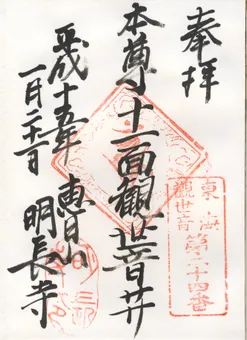 奉拝
本尊 十一面観世音井
平成十五年
一月二十二日
恵日山
明長寺
東海
観世音
第二十四番